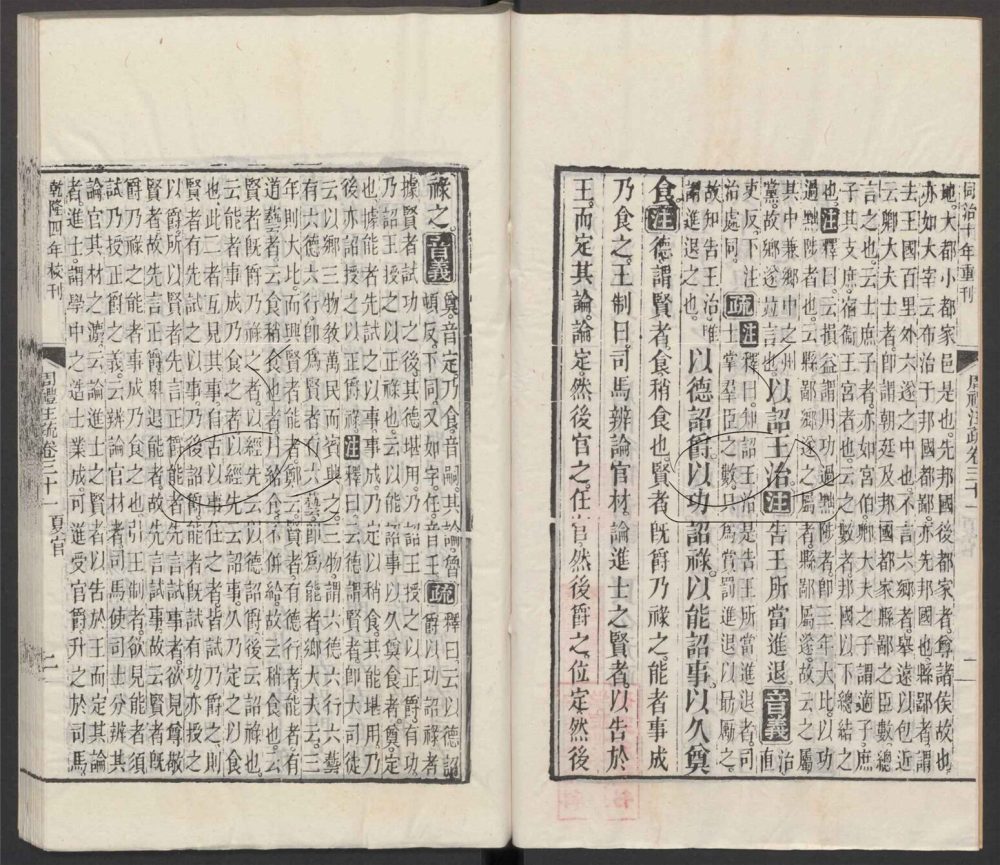 同治十年重刊
周禮注疏卷三十一
一
地。大都小都家邑是也。先邦國後都家者。尊諸侯故也。
亦如大宰云布治于邦國都鄙。亦先邦國也。縣鄙者。謂
去王國百里外六遂之中也。不言六鄉者。舉遠以包近
云卿大夫士者。即謂朝廷及邦國都家縣鄙之臣數。總
言之也。云士庶子者。亦如宮伯。卿大夫之子謂適子。庶
子其支庶。宿衞王宮者也。云之數者。邦國以下總結之
也。注釋曰。云損益謂用功過黜陟者。即三年大比。以功
過黜陟者也。云縣鄙鄉遂之屬者。縣鄙屬遂。故云之屬
其中兼鄉中之州
黨。故鄉遂竝言也。以詔王治注告王所當進退。音義治直
吏反。下注
治處同。疏注釋曰。詔王治。是告王所當進退者。司
士掌羣臣之數。只爲賞罰進退以勗厲之。
故知告王治。惟
謂進退之也。以德詔爵。以功詔祿。以能詔事。以久奠
食。注德謂賢者。食稍食也。賢者既爵乃祿之。能者事成
乃食之。王制曰。司馬辨論官材。論進士之賢者。以告於
王。而定其論。論定然後官之。任官然後爵之。位定然後
祿之。音義奠。音定。乃食。音嗣。其論。魯
頓反。下不同。又如字。任音壬。疏釋曰。云以德詔
爵以功詔祿者
據賢者試功之後。其德堪用。乃詔王授之以正爵。有功
乃詔王授之以正祿也。云以能詔事以久奠食者。奠。定
也。據能者先試之以事。事成乃定以稍食。其能堪用。乃
後亦詔授之以正爵祿。注釋曰。云德謂賢者。即大司徒
云以鄉三物教萬民而賓興之。三物。謂六德六行六藝
有六德六行。即爲賢者。有六藝。即爲能者。鄉大夫云。三
年則大比。而興賢者能者。鄭云。賢者有德行者。能者有
道藝者。云食稍食也者。月給食不併給。故云稍食也。云
賢者既爵乃祿之者。以經先云以德詔爵後云詔祿也。
云能者事成乃食之者。以經先云詔事久乃定之以食
也。此二者互見其事。自古以事任之者皆試乃爵之。則
賢者有先試之以事。乃後詔爵。能者既試有功。亦授之
以爵。所以賢者先言正爵。能者先言試事者。欲見尊敬
賢者。故先言正爵。卑退能者。故先言試事。故云賢者既
爵乃祿之。能者事成乃食之也。引王制者。欲見能者須
試乃授正爵之義。云辨論官材者。司馬使司士分辨其
論官其材之灋。云論進士之賢者以告於王而定其論
者。進士謂學中之造士業成可進受官爵升之於司馬
乾隆四年校刊
周禮注疏卷三十一 夏官
二